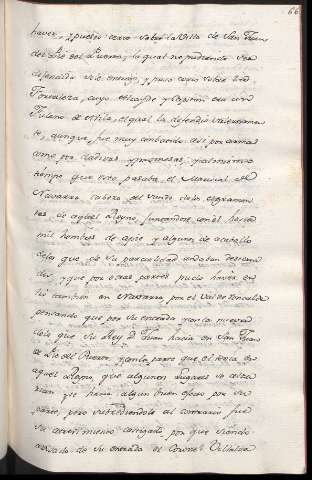 haver, y puesto cerco sobre la Villa de San Juan
del Pie del Puerto, la qual no pudiendo ser
defendida se le entregó, y puso cerco sobre una
Fortaleza, cuyo Alcayde y Capitan era un
Fulano de Avila, el qual la defendió valerosamen-
te, aunque fue muy combatido asi por armas
como por dadivas y promesas, y al mismo
tiempo que esto pasaba el Mariscal de
Navarra cabeza del vando de los Agramon-
teses de aquel Reyno, juntandose con el hasta
mil hombres de apie y algunos de acaballo
delos que de su parcialidad andaban desterra-
dos, y que por otras partes pudo haver en-
tró tambien en Navarra, por el Val de Roncal
pensando que por su entrada y con la nueva
delo que su Rey D. Juan hacia en San Juan
de Pie del Puerto, y con la parte que el tenia en
aquel Reyno, que algunos Lugares se alza-
rian y se haria algun buen efecto por su
parte, pero subcediendole al contrario fue
su atrevimiento castigado, por que siendo
avisado de su entrada el Coronel Villalva